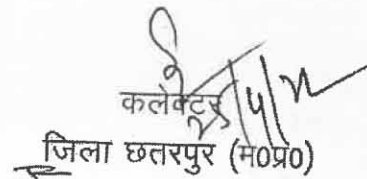 कलेक्टर
जिला छतरपुर (म0प्र0)